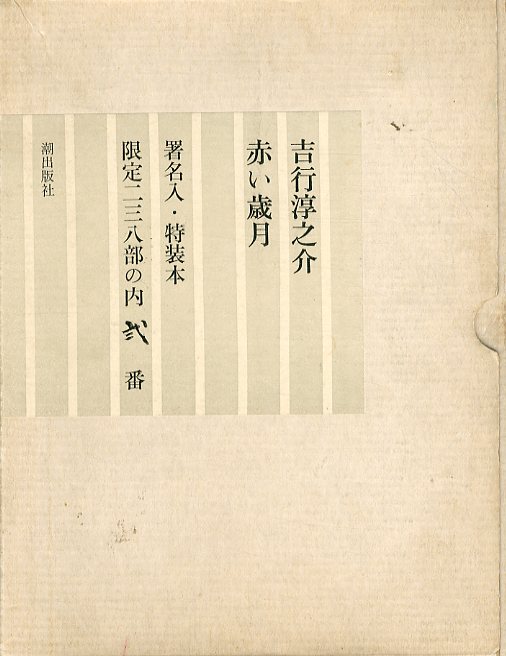 吉行淳之介
赤い歳月
署名入・特装本
限定二三八部の内 弐 番
潮出版社